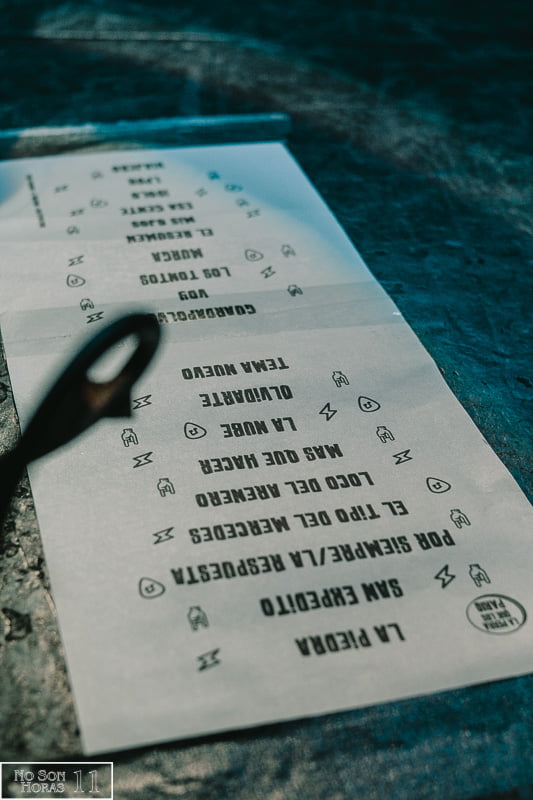 LA PERRA
QUE LOS
PARIO
LA PIEDRA
SAN EXPEDITO
POR SIEMPRE/LA RESPUESTA
EL TIPO DEL MERCEDES
LOCO DEL ARENERO
MAS QUE HACER
LA NUBE
OLVIDARTE
TEMA NUEVO
GUARDAPOLVO
VOY
LOS TONTOS
MURGA
EL RESUMEN
MIS OJOS
ESA GENTE
No Son
Horas 11